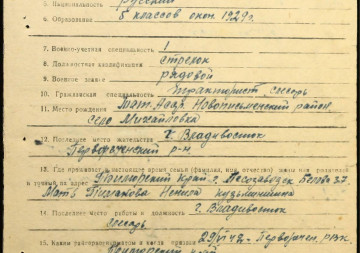 Национальность русский
6. Образование 5 классов окон. 1929 г.
7. Военно-учетная специальность 1
8. Должностная квалификация стрелок
9. Военное звание рядовой
10. Гражданская специальность тракторист слесарь
11. Место рождения Тат. Новописьменский район
село Михайловка
12. Последнее место жительства г. Владивосток
Первореченский р-н
13. Где проживает в настоящее время семья (фамилия, имя, отчество) жены или родителей
и точный их адрес Приморский край г. 37
Мать Кузьминична
14. Последнее место работы и должность г. Владивосток
слесарь
15. Каким райвоенкоматом и когда призван 29/VI 42 г. Первореч. РВК.
Приморский край